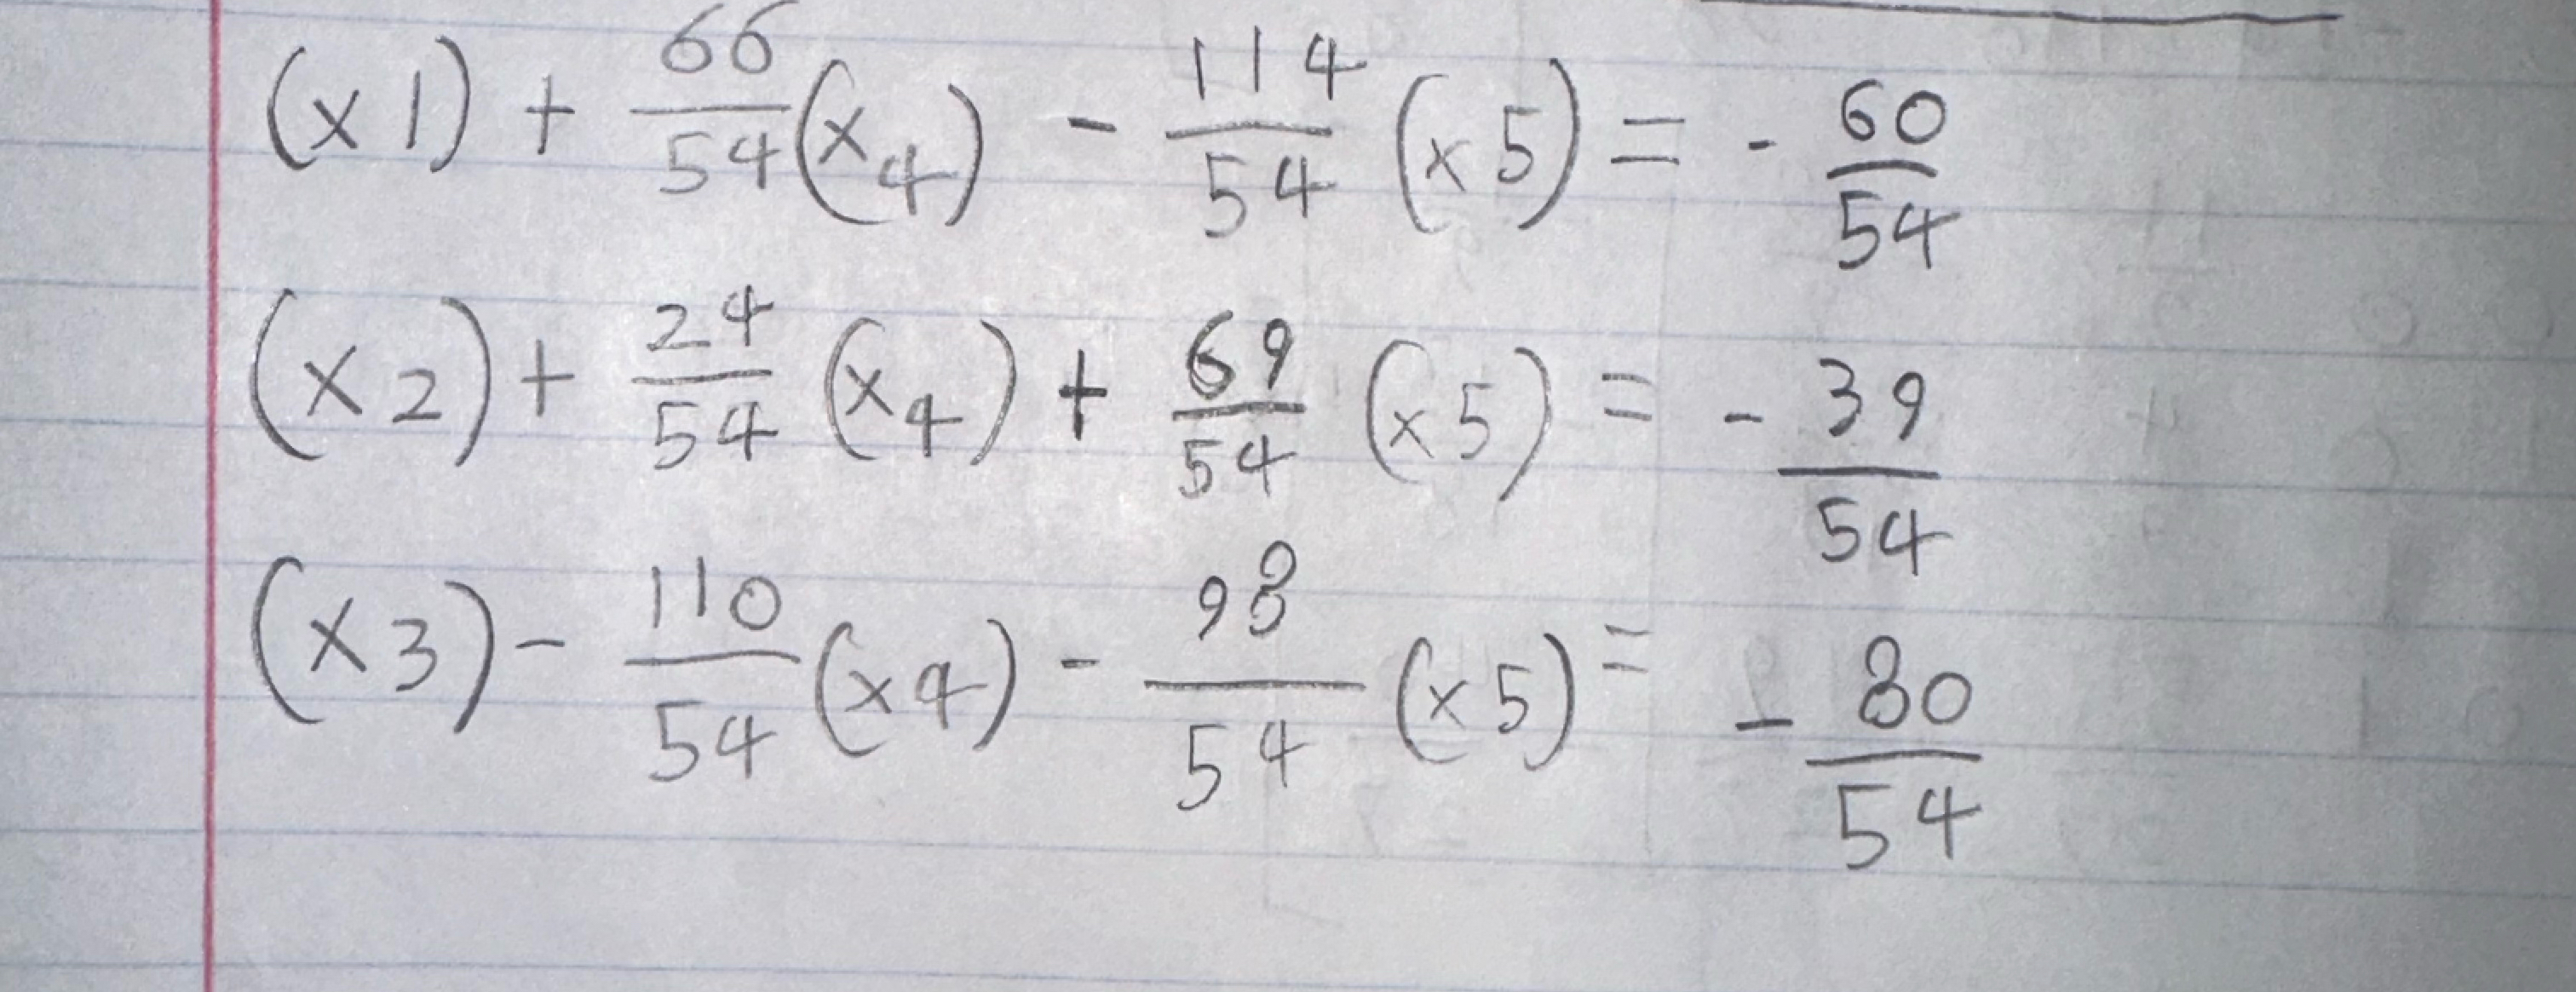 (x1) + 66/54 (x4) - 114/54 (x5) = - 60/54
(x2) + 24/54 (x4) + 69/54 (x5) = - 39/54
(x3) - 110/54 (x4) - 98/54 (x5) = - 80/54